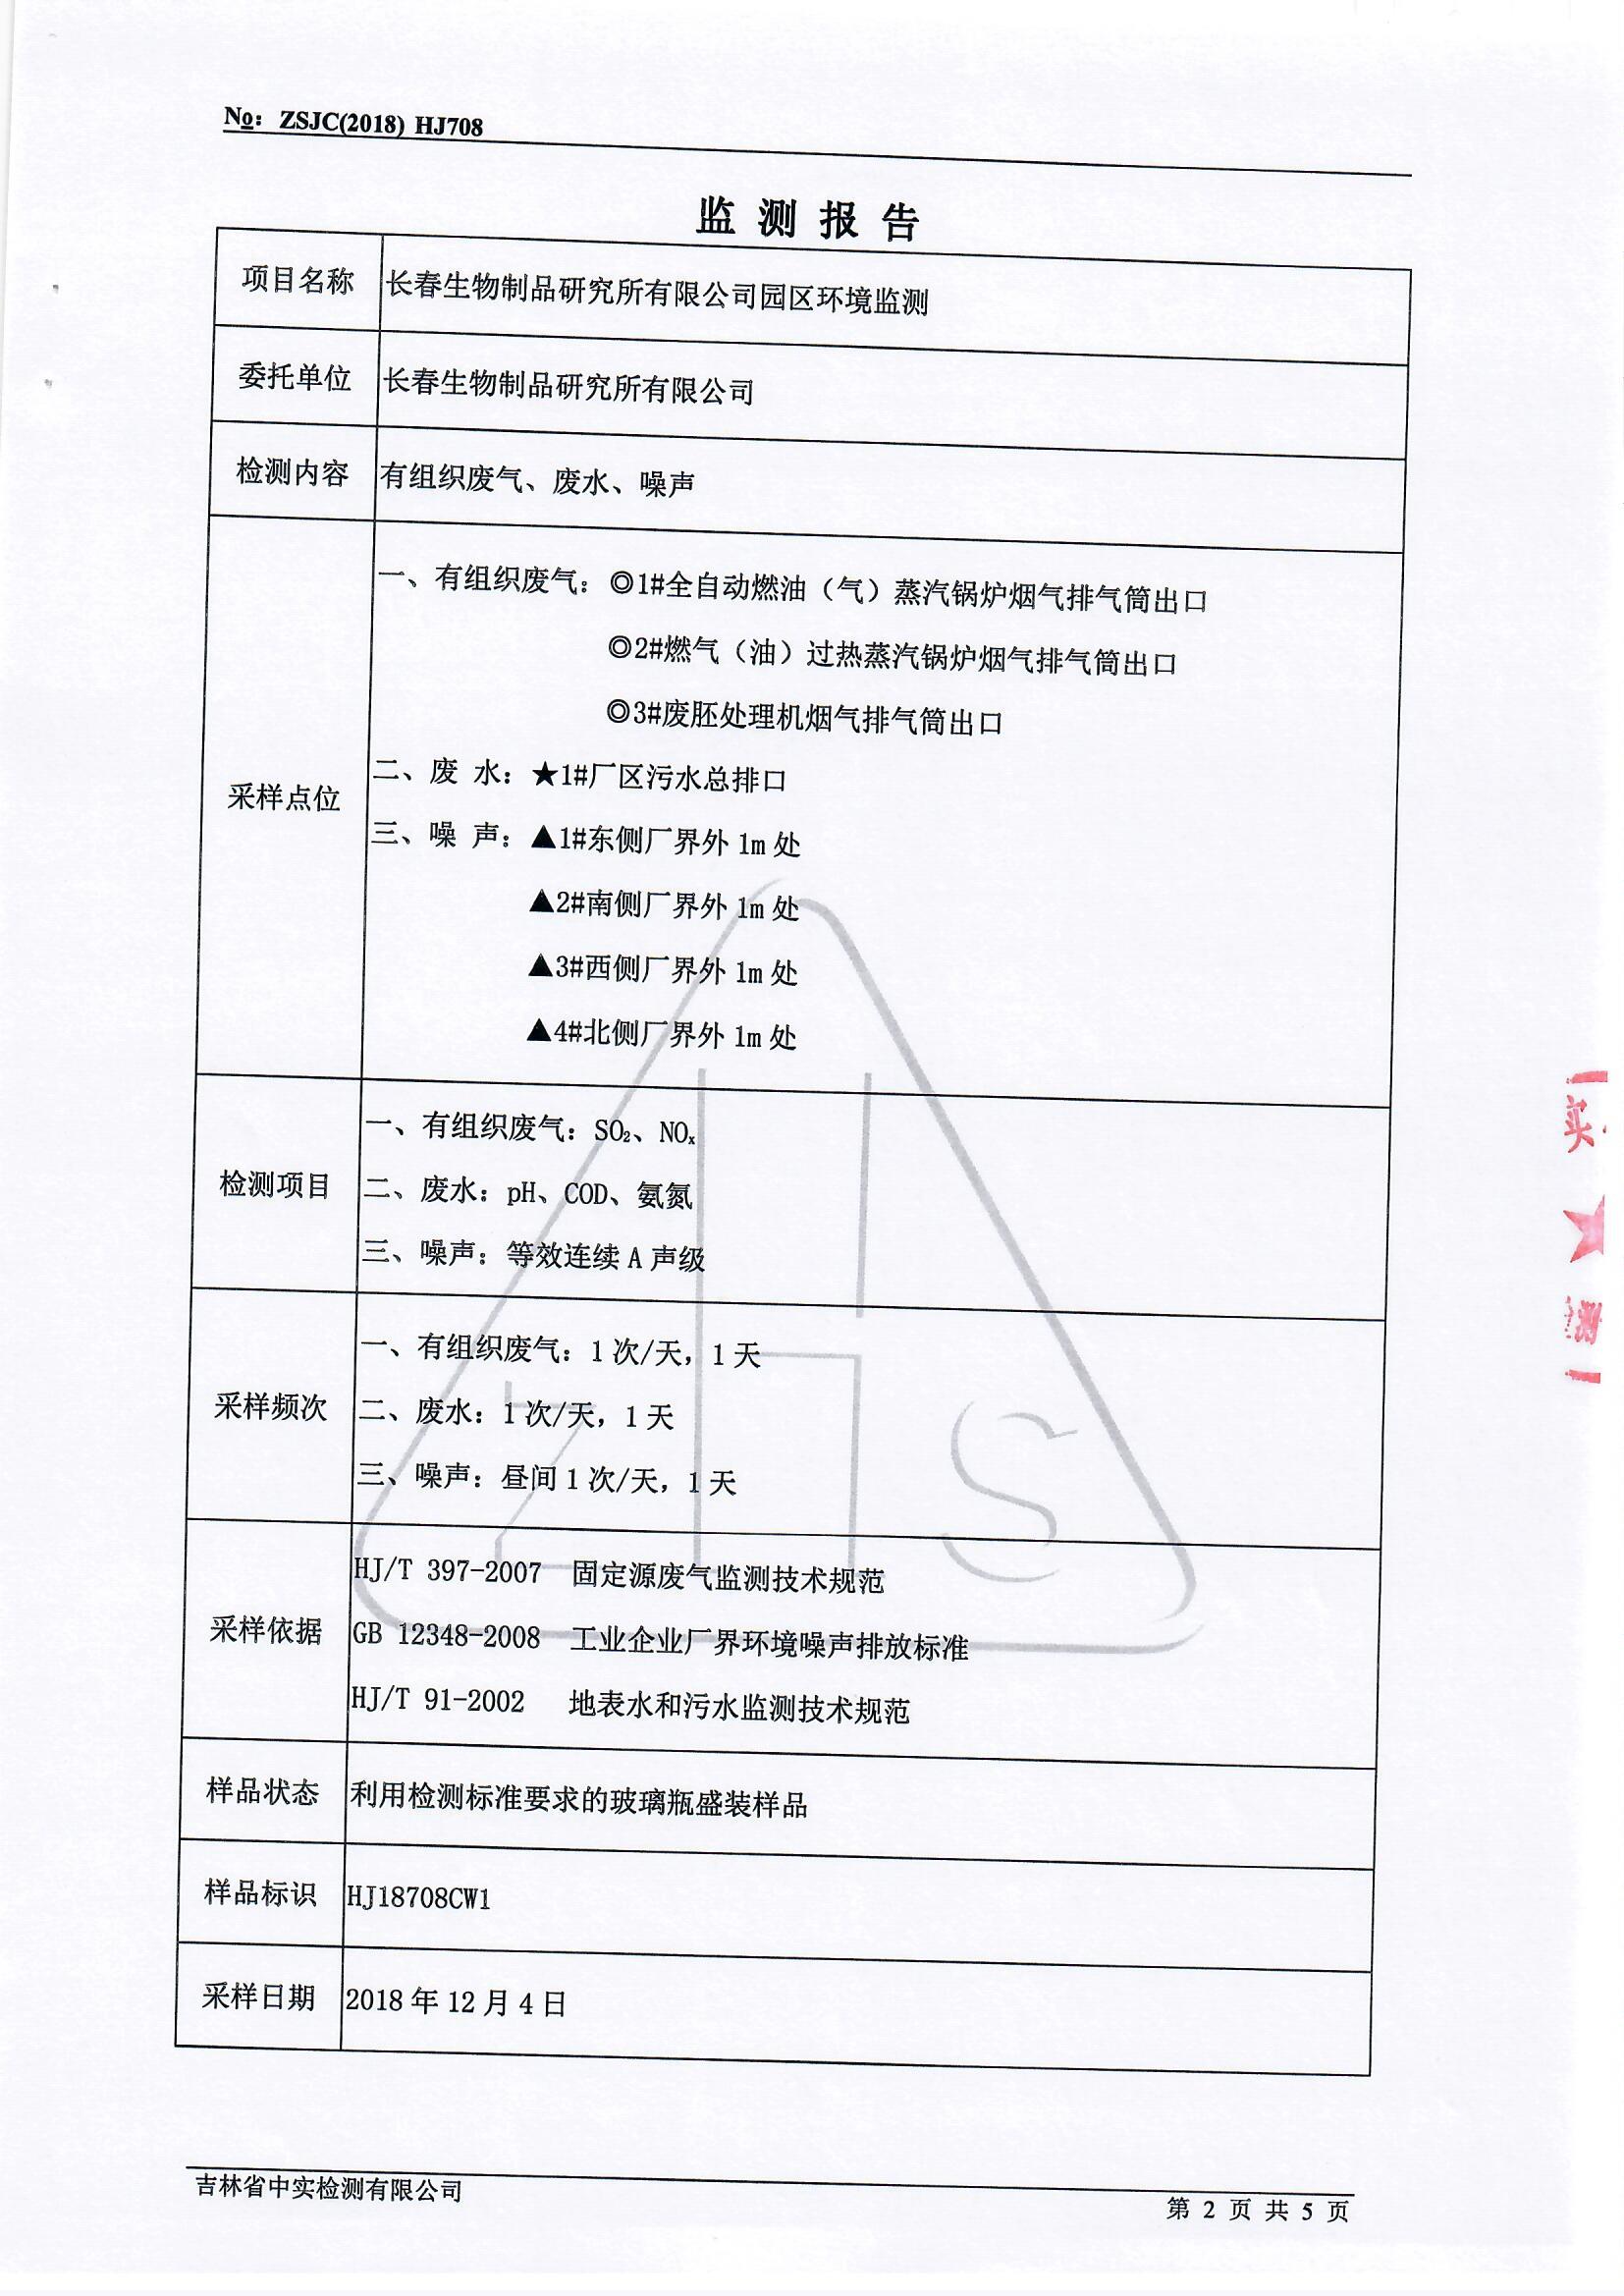 No: ZSJC(2018) HJ708
监 测 报 告
项目名称 长春生物制品研究所有限公司园区环境监测
委托单位 长春生物制品研究所有限公司
检测内容 有组织废气、废水、噪声
采样点位
一、有组织废气：◎1#全自动燃油（气）蒸汽锅炉烟气排气筒出口
◎2#燃气（油）过热蒸汽锅炉烟气排气筒出口
◎3#废胚处理机烟气排气筒出口
二、废 水：★1#厂区污水总排口
三、噪 声：▲1#东侧厂界外 1m 处
▲2#南侧厂界外 1m 处
▲3#西侧厂界外 1m 处
▲4#北侧厂界外 1m 处
检测项目
一、有组织废气：SO₂、NOₓ
二、废水：pH、COD、氨氮
三、噪声：等效连续 A 声级
采样频次
一、有组织废气：1 次/天，1 天
二、废水：1 次/天，1 天
三、噪声：昼间 1 次/天，1 天
采样依据
HJ/T 397-2007 固定源废气监测技术规范
GB 12348-2008 工业企业厂界环境噪声排放标准
HJ/T 91-2002 地表水和污水监测技术规范
样品状态 利用检测标准要求的玻璃瓶盛装样品
样品标识 HJ18708CW1
采样日期 2018 年 12 月 4 日
ZHS
吉林省中实检测有限公司
第 2 页 共 5 页